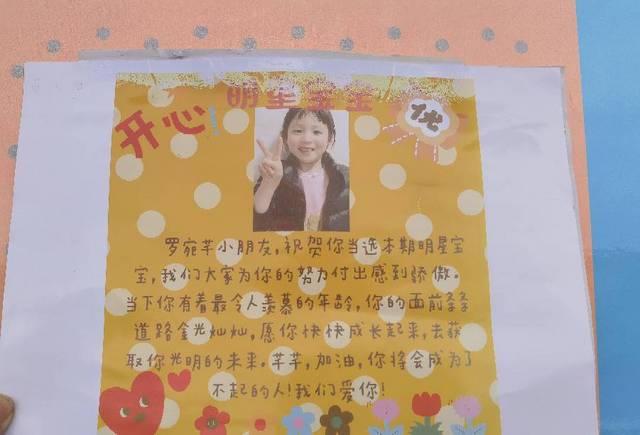 明星宝宝
开心!
优
罗宛芊小朋友,祝贺你当选本期明星宝
宝,我们大家为你的努力付出感到骄傲。
当下你有着最令人羡慕的年龄,你的面前条条
道路金光灿灿,愿你快快成长起来,去获
取你光明的未来。芊芊,加油,你将会成为了
不起的人!我们爱你!